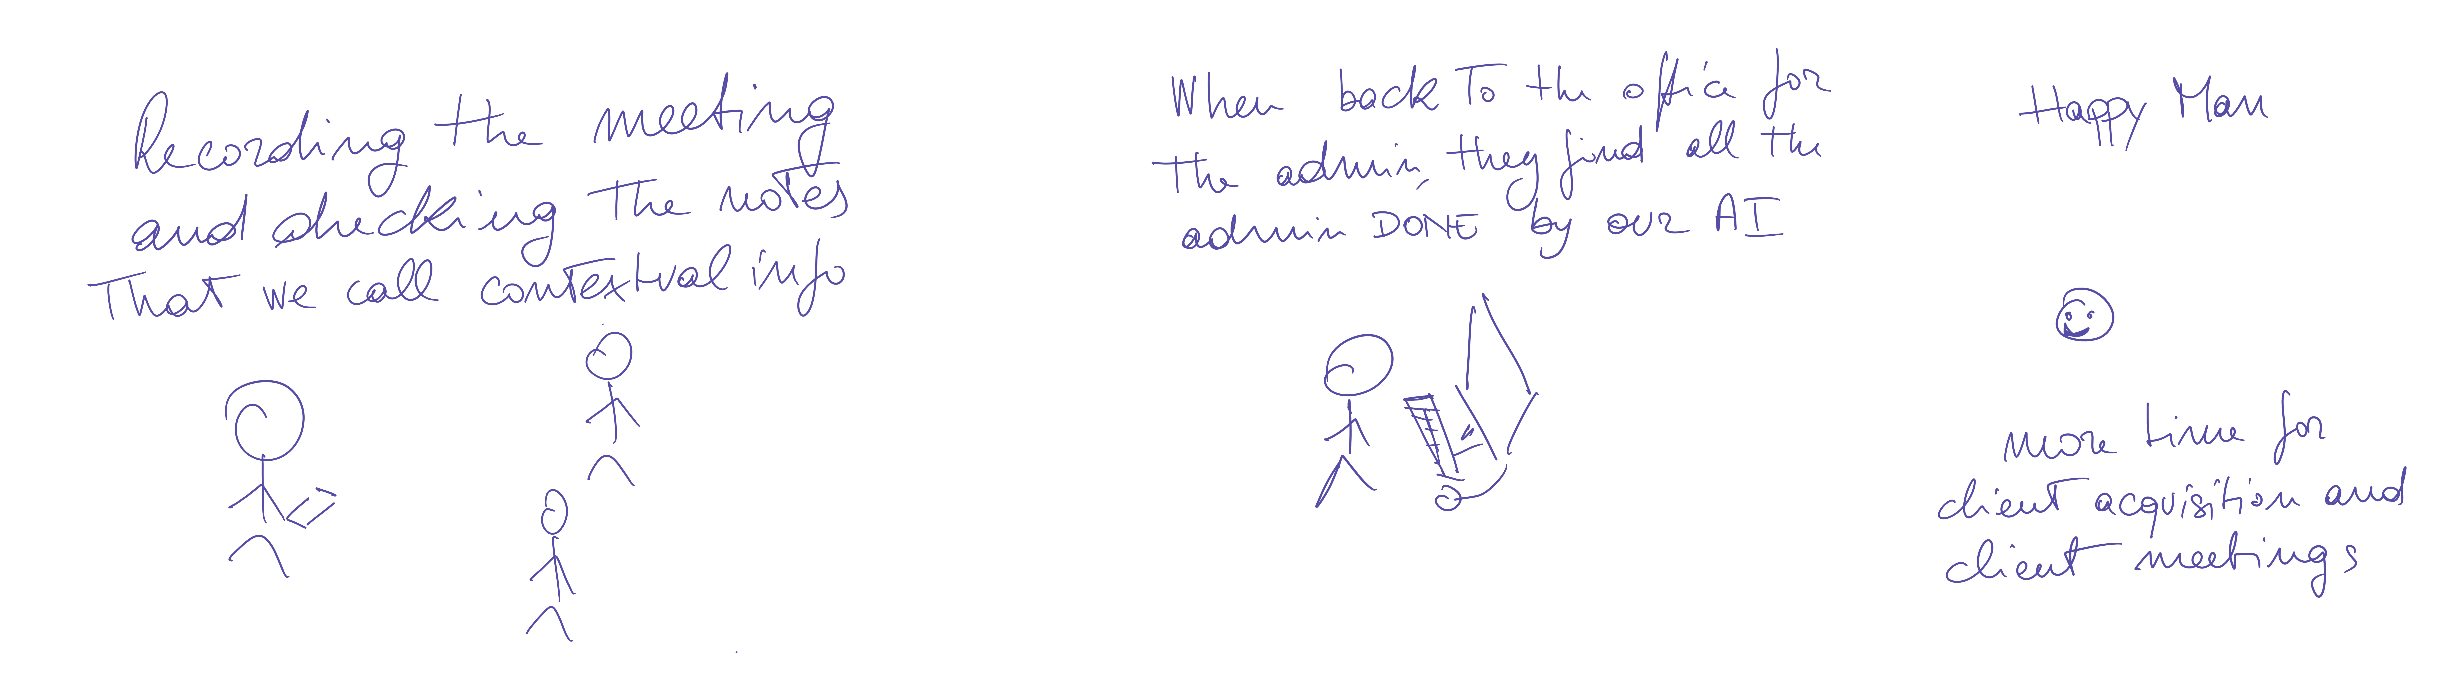 Recording the meeting
and checking the notes
That we call contextual info
When back To the office for
the admin, they find all the
admin DONE by our AI
Happy Man
more time for
client acquisition and
client meetings